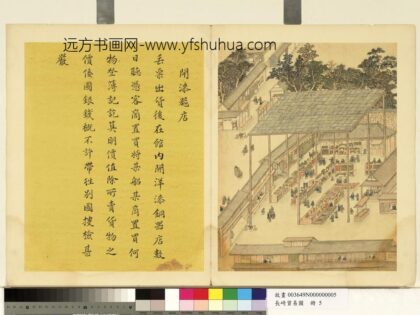 远方书画网-www.yfshuhua.com
開漆器店
丟票出貨後在館內開洋漆銅器店數
日聽憑客商置買將某船某商置買何
物登簿記訖算明價值除所賣貨物之
價倭國銀錢概不許帶往別國搜檢甚
嚴
故畫 003649N000000005
長崎貿易圖 冊 5